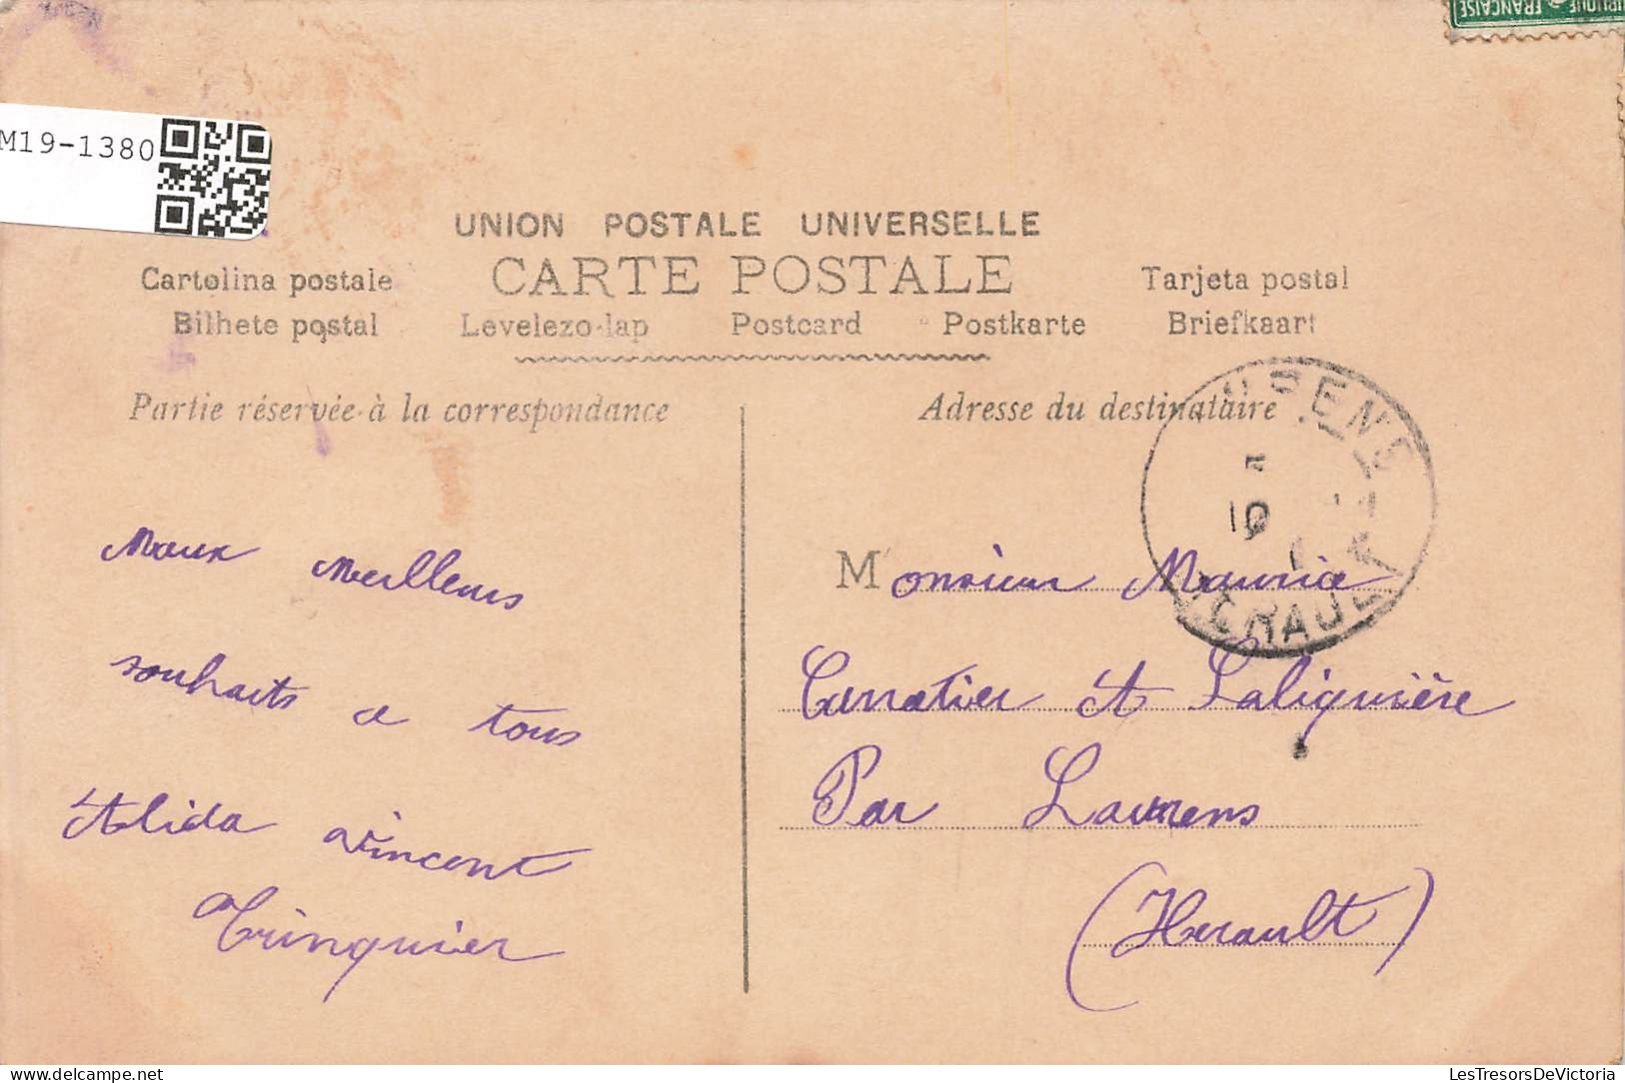 RÉPUBLIQUE FRANÇAISE
M19-1380
UNION POSTALE UNIVERSELLE
Cartolina postale CARTE POSTALE Tarjeta postal
Bilhete postal Levelezo-lap Postcard Postkarte Briefkaart
Partie réservée à la correspondance
Adresse du destinataire
meilleurs
souhaits a tous
Alida Vincent
Trinquier
Monsieur Maurice
et Laliquière
Par Laurens
(Herault)
HERAULT
LesTresorsDeVictoria
https://www.delcampe.net